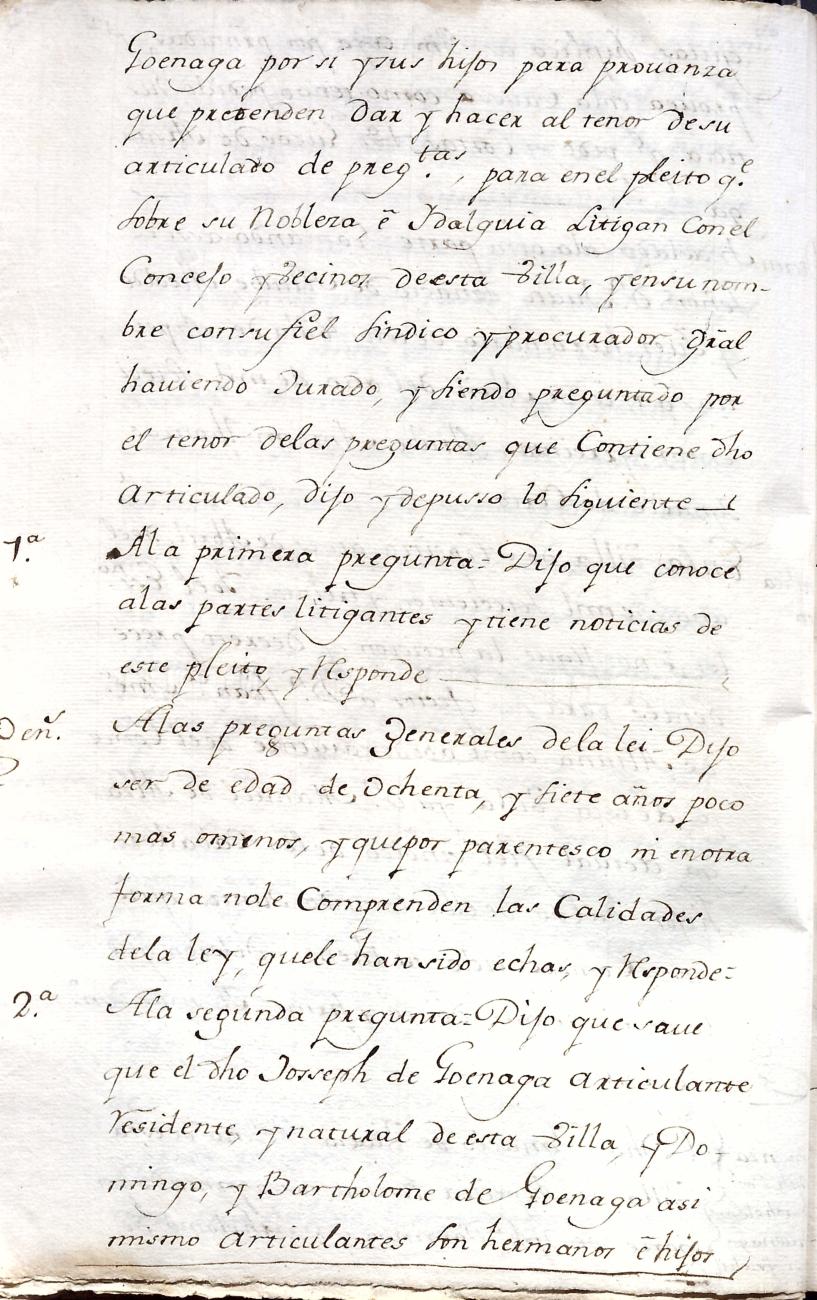 Goenaga por si y sus hijos para provanza
que pretenden dar y hacer al tenor de su
articulado de preg.tas, para en el pleito q.e
sobre su Nobleza, ê Idalguia Litigan con el
Concejo y Vecinos de esta Villa, y en su nom-
bre con su fiel sindico y procurador Gral,
haviendo Jurado, y siendo preguntado por
el tenor de las preguntas que Contiene dho
Articulado, dijo y depusso lo siguiente
1.a A la primera pregunta = Dijo que conoce
a las partes litigantes y tiene noticias de
este pleito, y Responde
Gen.s A las preguntas Generales de la lei = Dijo
ser de edad de Ochenta, y siete años poco
mas o menos, y que por parentesco ni en otra
forma no le Comprenden las Calidades
de la ley, que le han sido echas, y Responde =
2.a A la segunda pregunta = Dijo que save
que el dho Josseph de Goenaga articulante
Residente, y natural de esta Villa, y Do-
mingo, y Bartholome de Goenaga asi
mismo articulantes son hermanos ê hijos